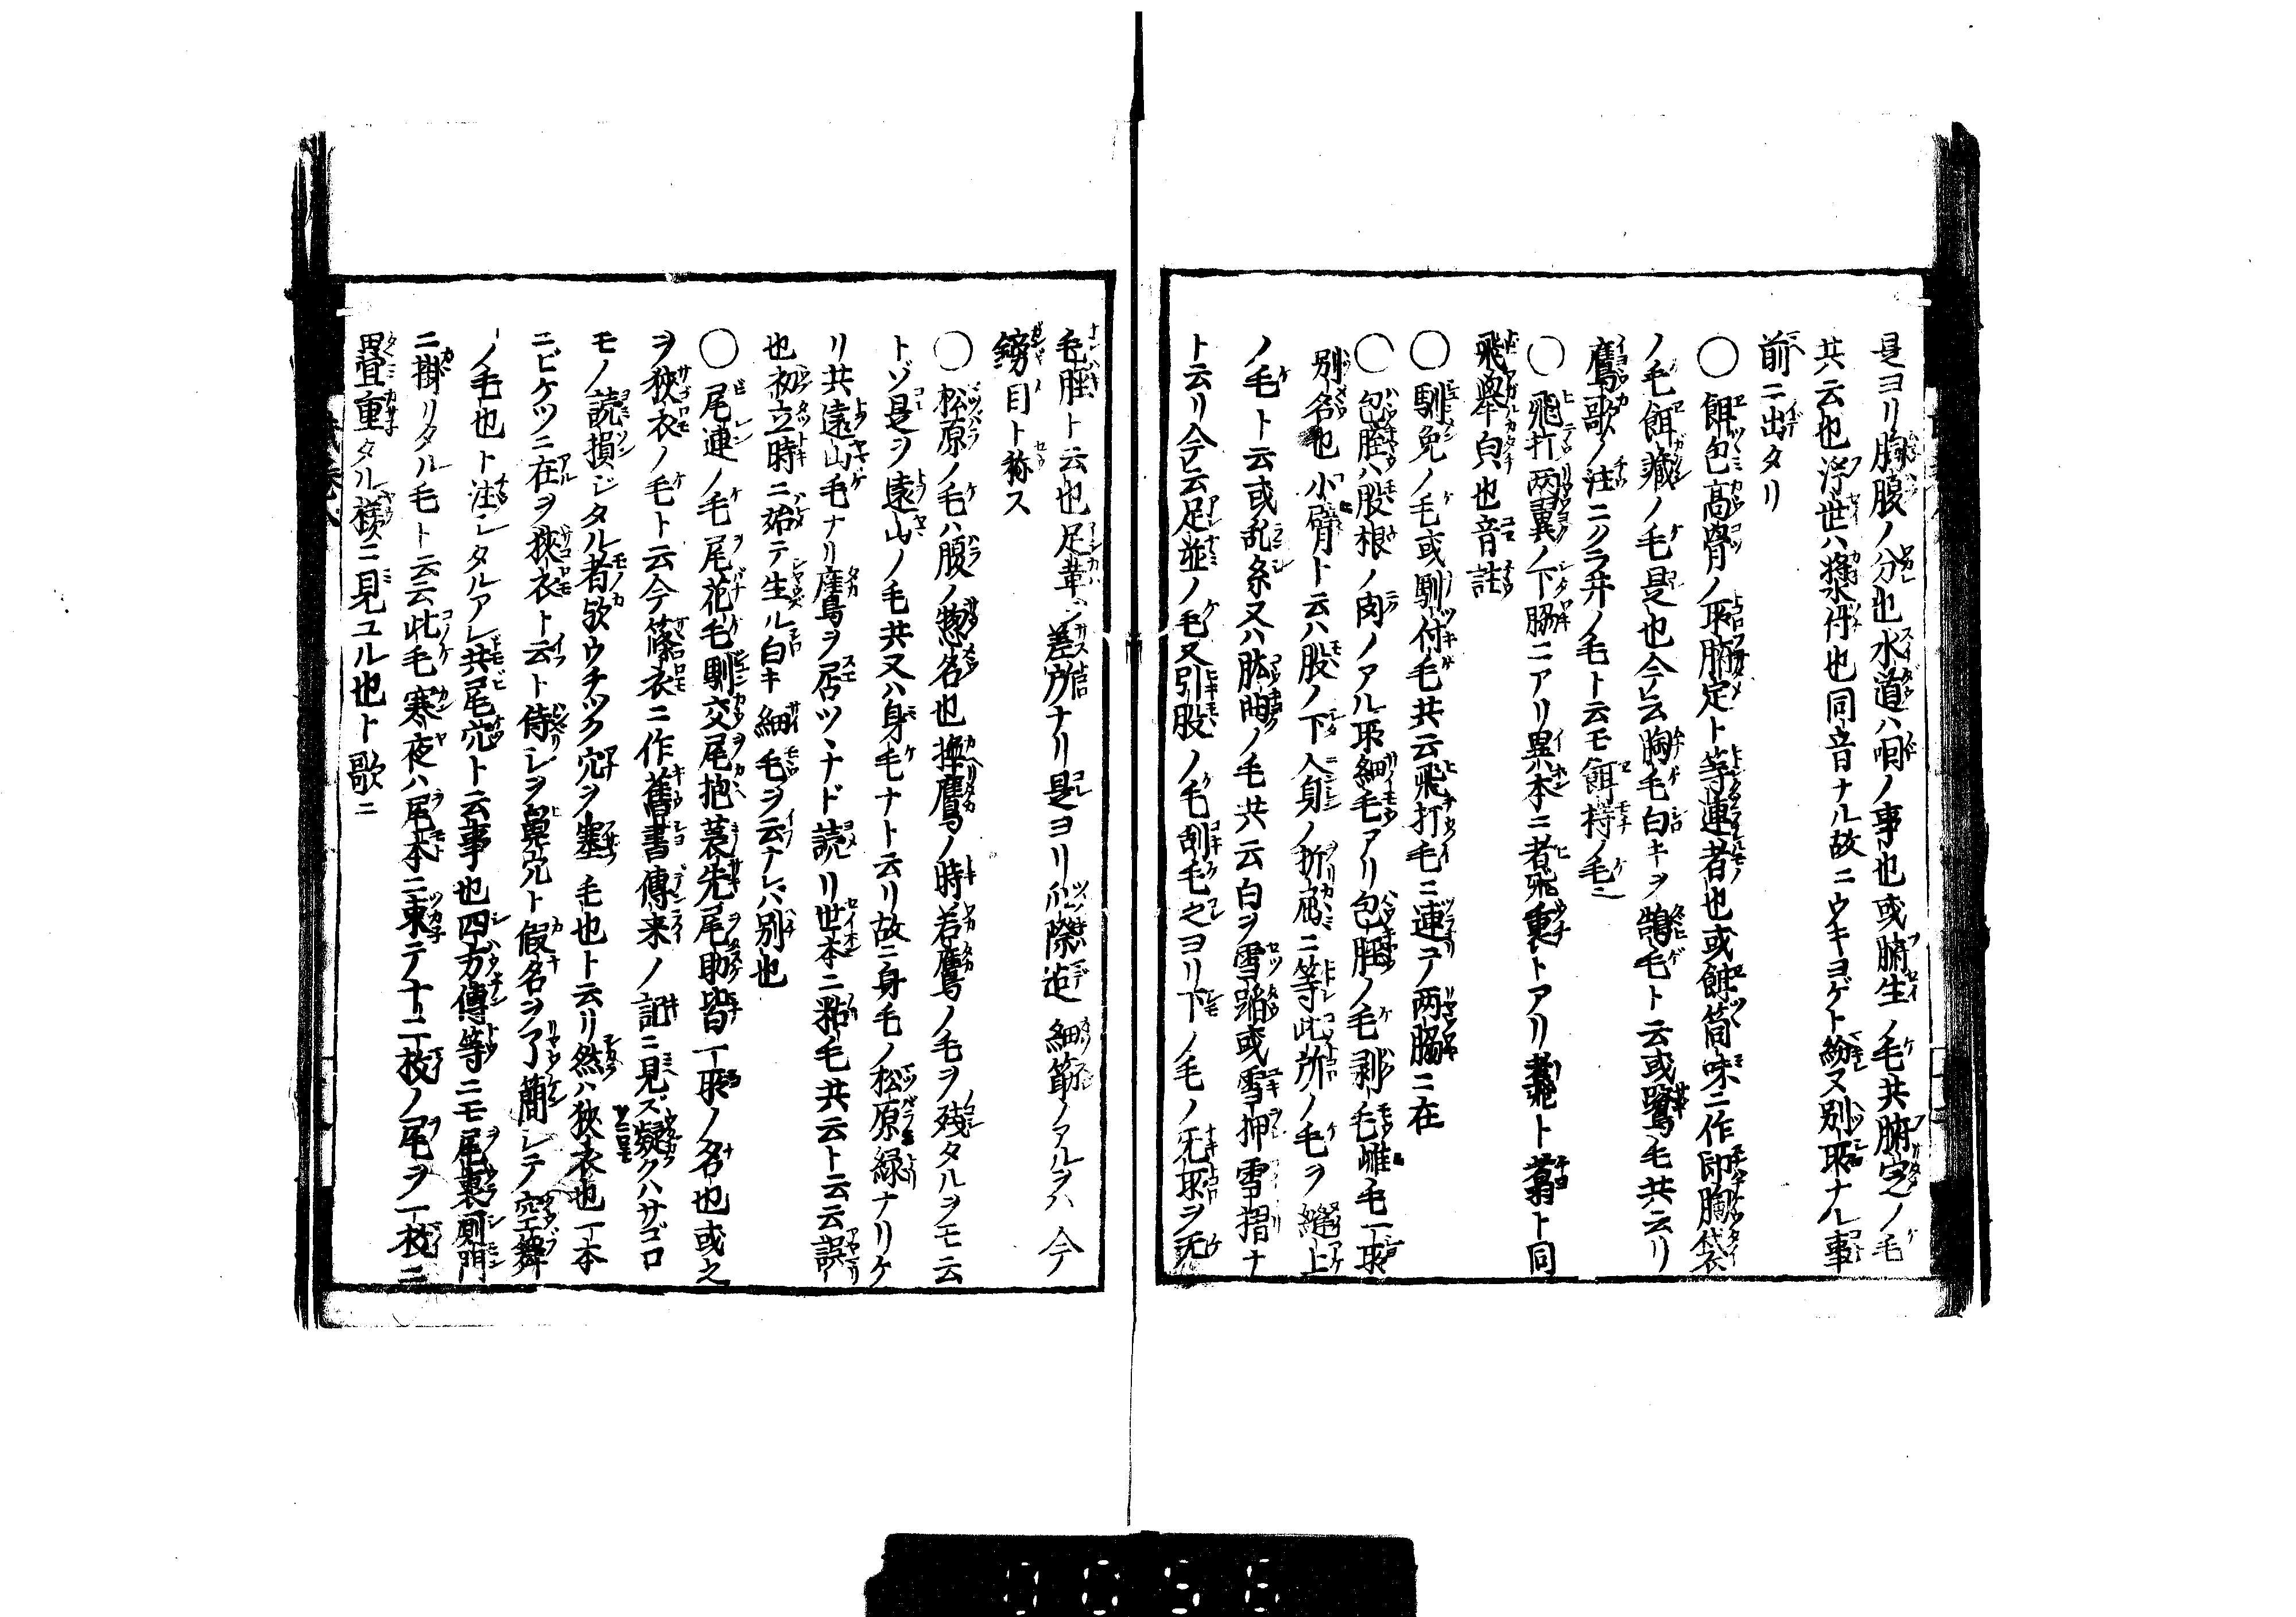 是ヨリ胸腹ノ分也水道ハ咽ノ事也或腑生ノ毛共腑定ノ毛
共云也浮世ハ掾水伃也同音ナル故ニウキヨゲト紛ヌ別所ナル事
前ニ出タリ
〇餌包高骨ノ所腑定ト等連者也或餌筒味ニ作印胸袋
ノ毛餌蔵ノ毛是也今云胸毛白キヲ鵠毛ト云或鷺毛共云リ
鷹歌ノ注ニクラ弁ノ毛ト云モ餌持ノ毛也
〇飛打両翼ノ下脇ニアリ異本ニ者飛裏トアリ翥ト翦ト同
飛挙皃也音註
〇馴免ノ毛或馴付毛共云飛打毛ニ連ヨノ両脇ニ在
〇包脛ハ股根ノ肉ノアル所細毛アリ包脛ノ毛剥毛雌毛一所
別名也小臂ト云ハ股ノ下人身ノ折屈ニ等此所ノ毛ヲ縫上
ノ毛ト云或乱糸又ハ脇ノ毛共云白ヲ雪踏或雪押雪摺ナ
ト云リ今云足並ノ毛又引股ノ毛刮毛之ヨリ下ノ毛ノ无所ヲ无
毛脛ト云也足革ヲ差所ナリ是ヨリ爪際迠細筋ノアルヲハ今
鎊目ト称ス
〇松原ノ毛ハ腹ノ惣名也撫鷹ノ時若鷹ノ毛ヲ残タルヲモ云
トゾ是ヲ遠山ノ毛共又ハ身毛ナト云リ故ニ身毛ノ松原緑ナリケ
リ共遠山毛ナリ鷹ヲ居ツヽナド読リ世本ニ粘毛共云ト云云誤
也初立時ニ始テ生ル白キ細毛ヲ云ナレハ別也
〇尾連ノ毛尾花毛馴交尾抱蓑先尾助皆一所ノ名也或之
ヲ狭衣ノ毛ト云今篠衣ニ作舊書傳来ノ記ニ見ズ疑クハサゴロ
モノ読損ジタル者欤ウチツク穴ヲ塞毛也ト云リ然ハ狭衣也一本
ニビケツニ在ヲ狭衣ト云ト侍シヲ鼻穴ト假名ヲ了簡シテ空舞
ノ毛也ト注シタルアレ共尾穴ト云事也四方傳等ニモ尾裏厠門
ニ掛リタル毛ト云云此毛寒夜ハ尾本ニ束テ十二枚ノ尾ヲ一枚ニ
畳重タル様ニ見ユル也ト歌ニ